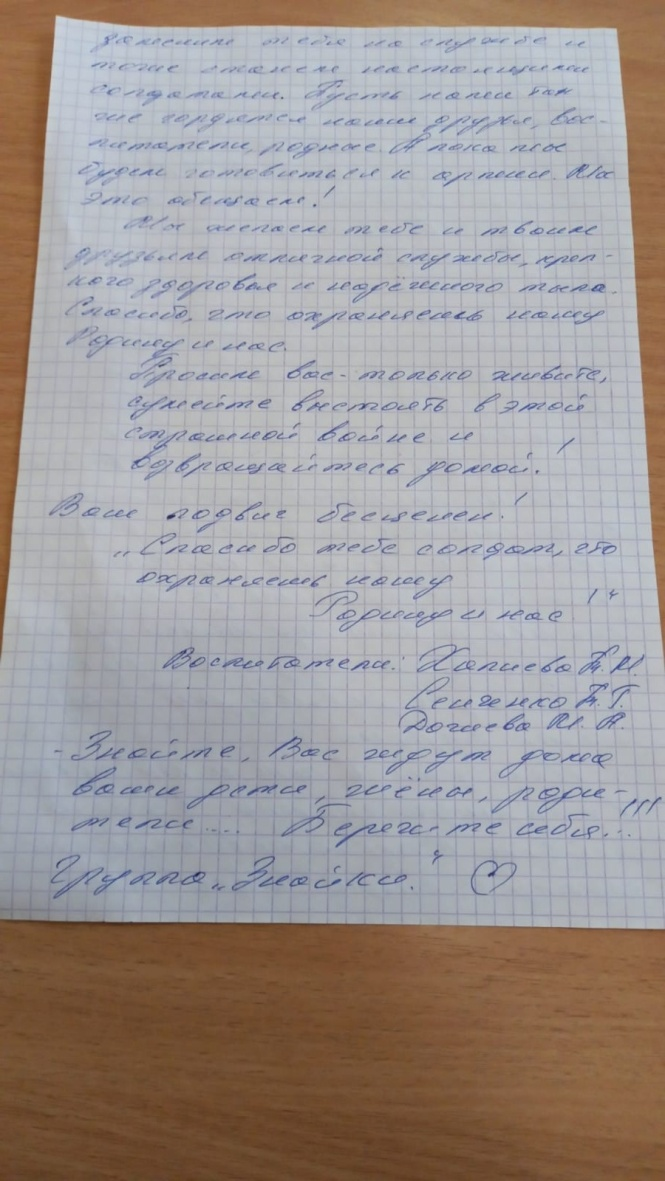 заменим тебя на службе и
тоже станем настоящими
солдатами. Пусть нами так
же гордятся наши друзья, вос-
питатели, родные. А пока мы
будем готовиться к армии. Мы
это обещаем!
Мы желаем тебе и твоим
друзьям отличной службы, креп-
кого здоровья и надёжного тыла.
Спасибо, что охраняешь нашу
Родину и нас.
Просим вас - только живите,
сумейте выстоять в этой
страшной войне и
возвращайтесь домой!
Ваш подвиг бесценен!
„Спасибо тебе солдат, что
охраняешь нашу
Родину и нас!"
Воспитатели: Хапиева Т.М.
Сенченко Т.Г.
Догиева М.А.
- Знайте, Вас ждут дома
ваши дети, жёны, роди-
тели.... Берегите себя...!!!
Группа „Знайки."